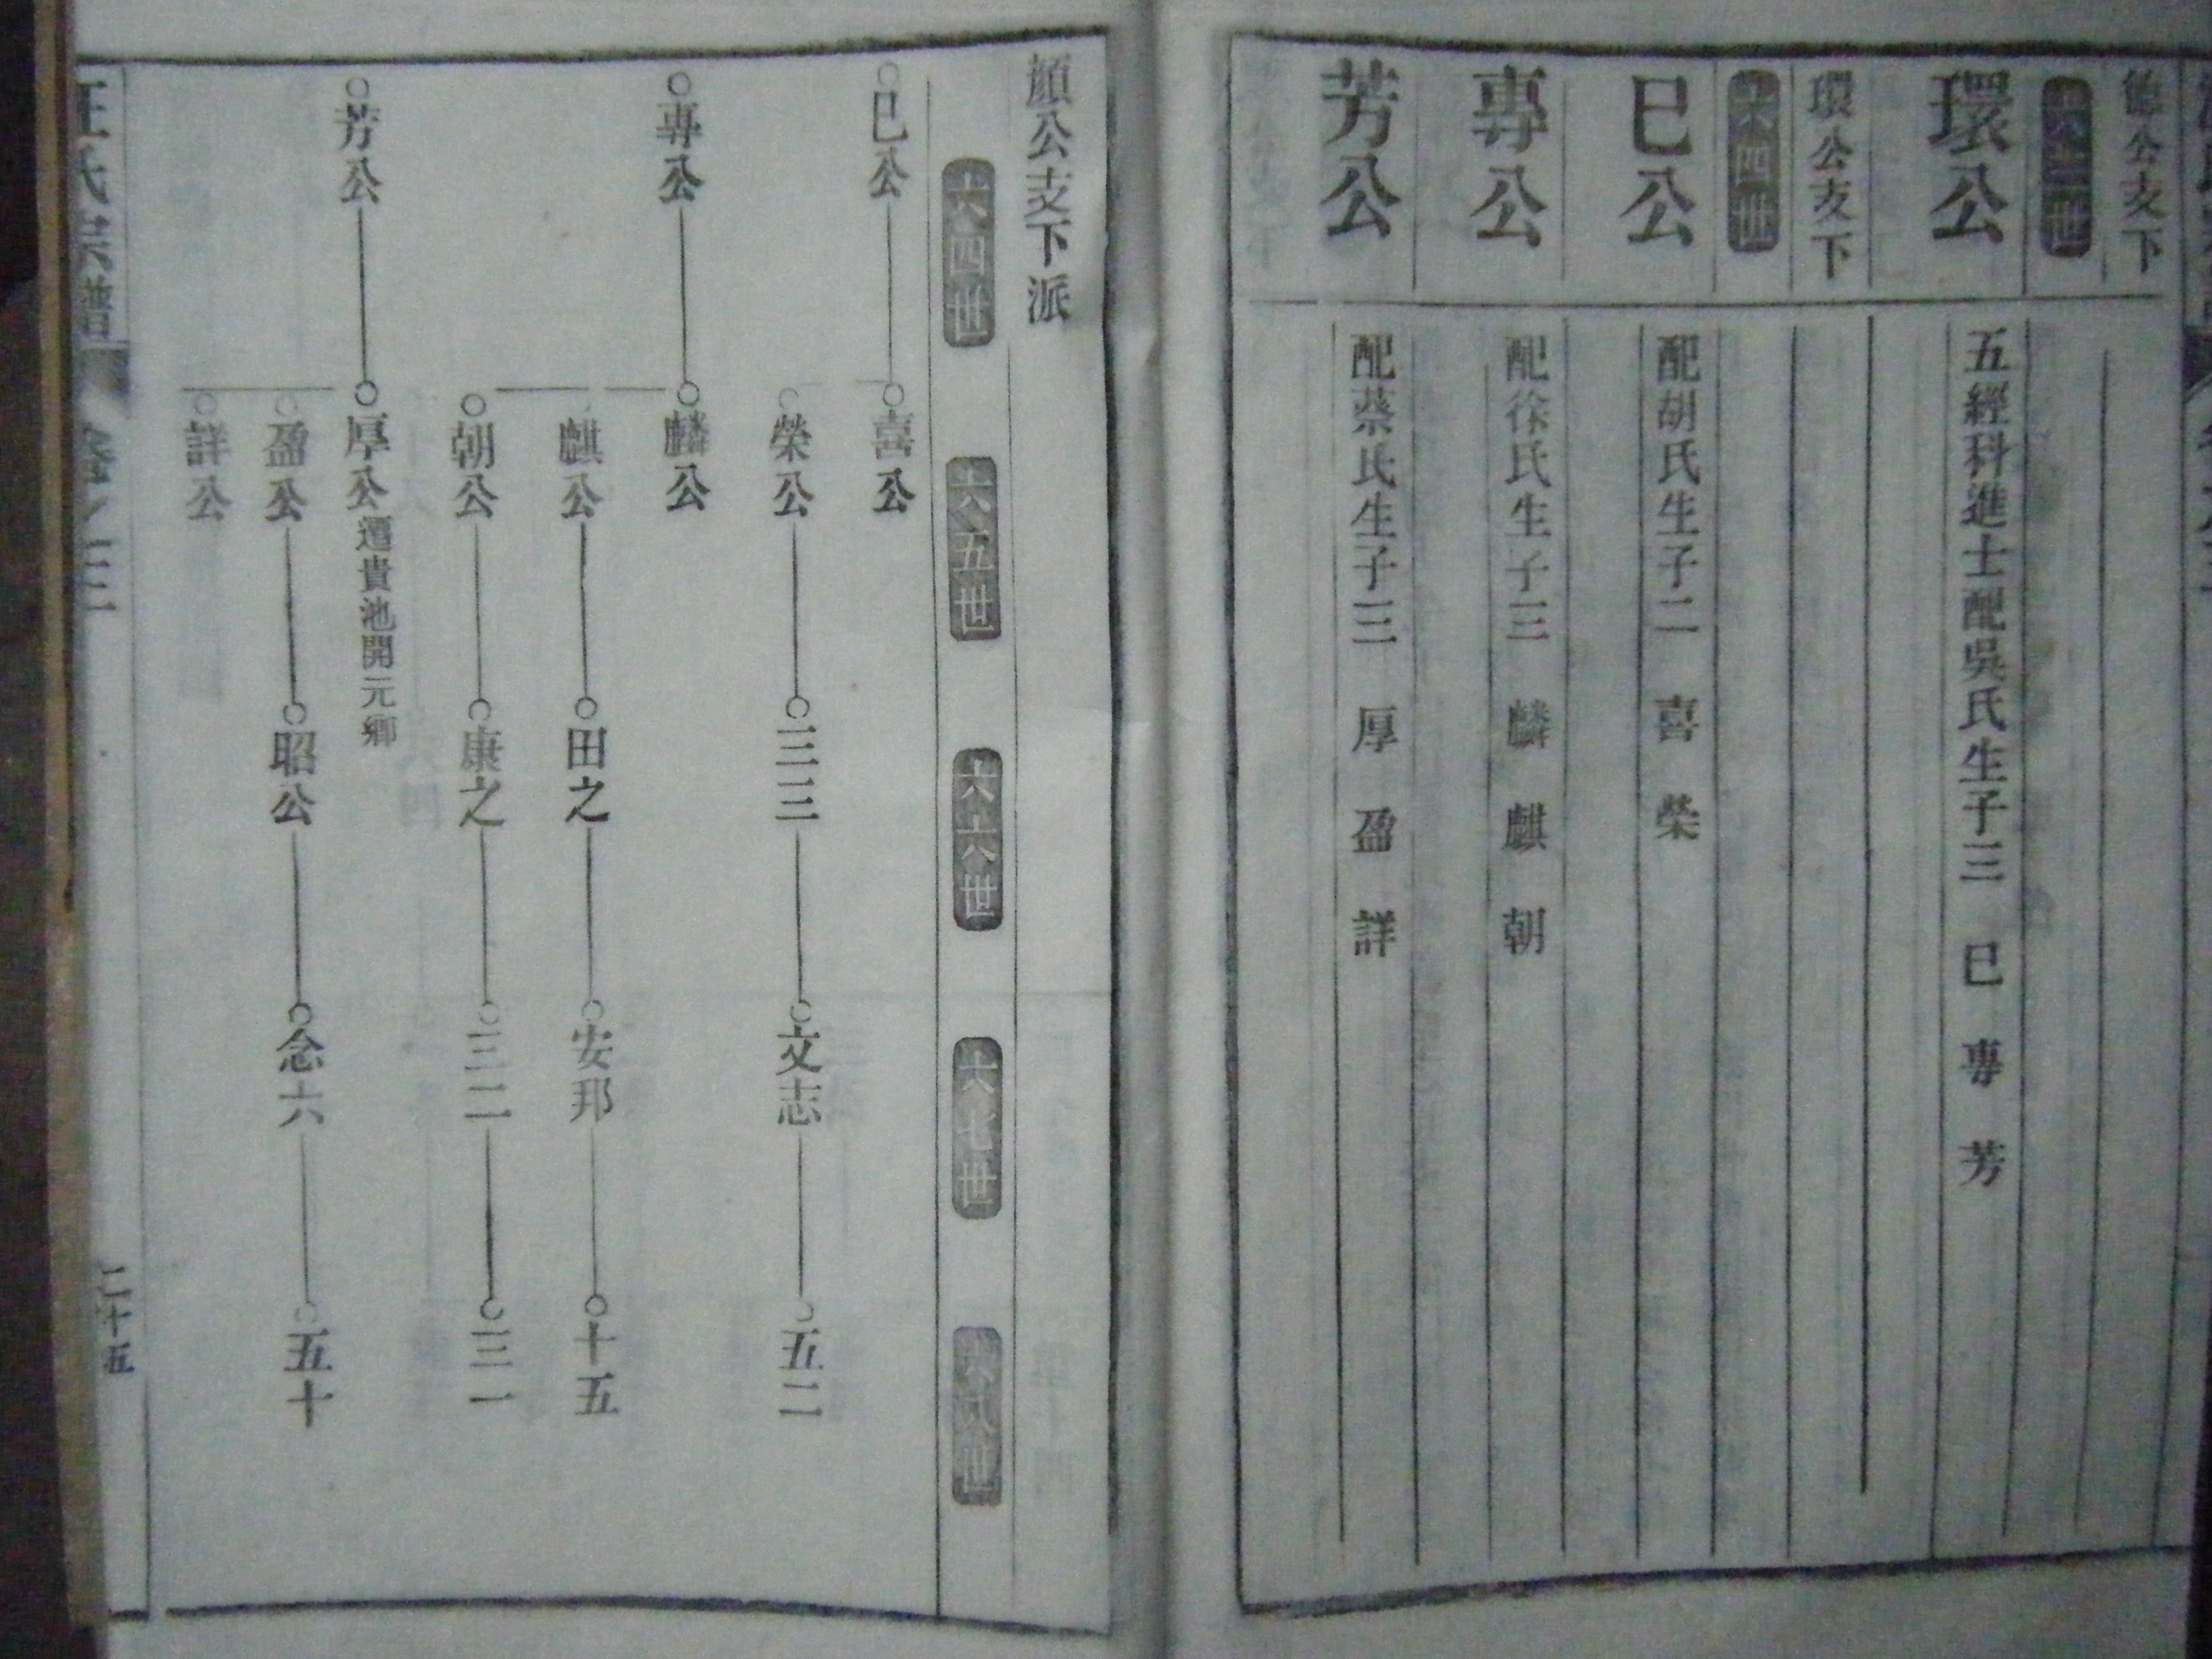 公支下
六三世
環公
五經科進士配吳氏生子三 巳 專 芳
環公支下
六四世
巳公
配胡氏生子二 喜 榮
專公
配徐氏生子三 麟 麒 朝
芳公
配蔡氏生子三 厚 盈 詳
顏公支下派
六四世 六五世 六六世 六七世 六八世
巳公 喜公
榮公 三三 文志 五二
專公 麟公
麒公 田之 安邦 十五
朝公 康之 三二 三一
芳公 厚公 遷貴池開元鄉
盈公 昭公 念六 五十
詳公
氏宗譜 卷之三 二十五